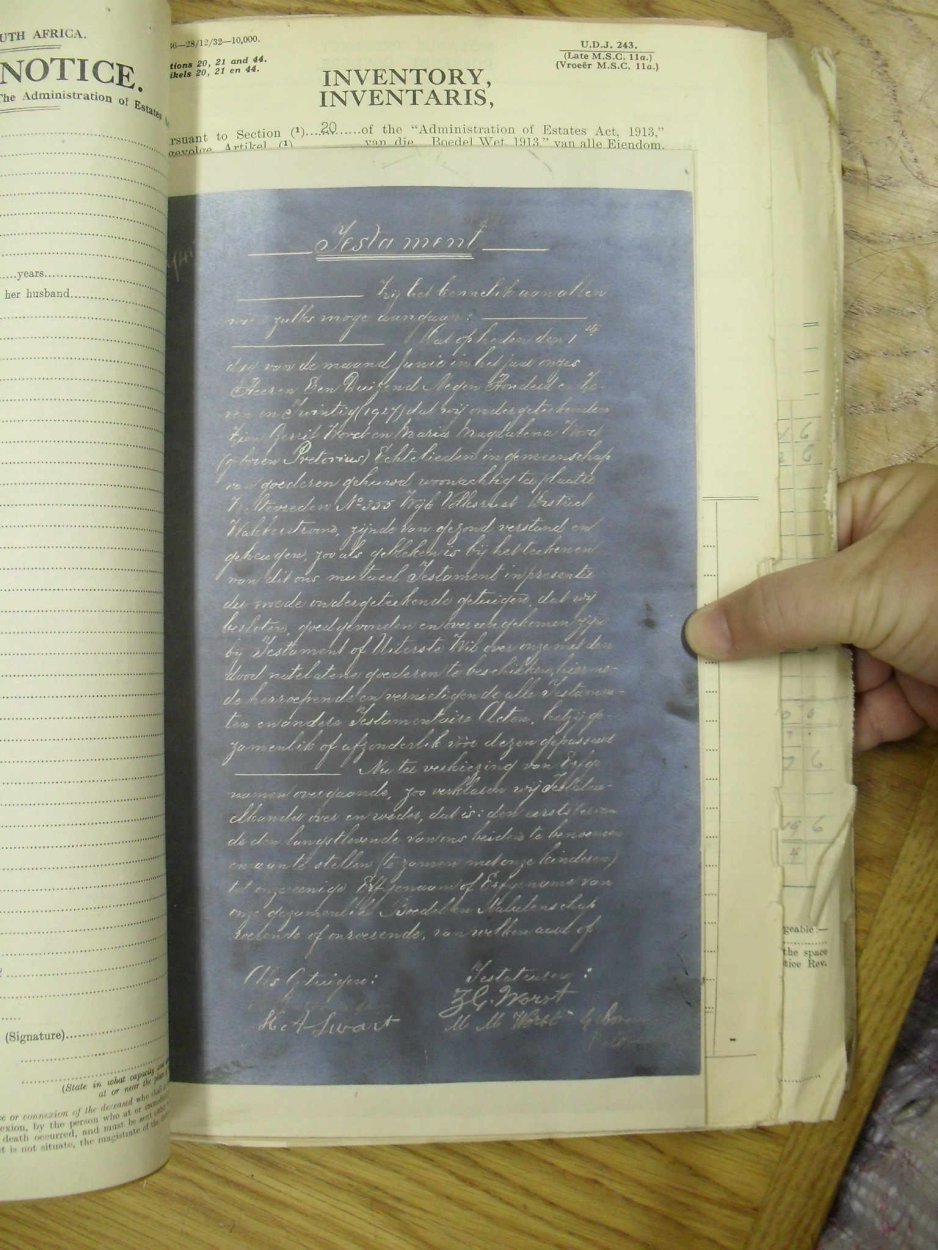 UTH AFRICA.
NOTICE.
The Administration of Estates
years
her husband
(Signature)
(State in what capacity
at or near the
or connexion of the deceased who
exion, by the person who at or
death occurred, and must be sent
t is not situate, the magistrate of the
—28/12/32—10,000.
tions 20, 21 and 44.
ikels 20, 21 en 44.
U.D.J. 243.
(Late M.S.C. 11a.)
(Vroeër M.S.C. 11a.)
INVENTORY,
INVENTARIS,
rsuant to Section (¹)....20.....of the "Administration of Estates Act, 1913,"
gevolge Artikel (¹) van die Boedel Wet, 1913," van alle Eiendom.
Testament
Zij het kennelik aan allen
wien zulks moge aangaan:
Dat op heden den 1ste
dag van de maand Junie in het jaar onzes
Heeren Een Duizend Negen Honderd en Ze-
ven en Twintig (1927) dat wij ondergetekenden
Gerrit Worst en Maria Magdalena Worst
(geboren Pretorius) Echtelieden in gemeenschap
van goederen gehuwd woonachtig te plaatse
No 355 Wijk Volksrust District
Wakkerstroom, zijnde van gezond verstand en
geheugen, zoo als gebleken is bij het teekenen
van dit ons mutueel Testament in presentie
der mede ondergetekende getuigen, dat wij
besloten, goedgevonden en overeengekomen zijn
bij Testament of Uiterste Wil over onze met den
dood natelatene goederen te beschikken, hiermee-
de herroepende en vernietigende alle Testamen-
ten en andere Testamentaire Acten, hetzij ge-
zamenlik of afzonderlik vóór dezen gepasseerd
Nu ter verkiezing van Erfge-
namen overgaande, zoo verklaren wij
over en weder, dat is: den eerststerven-
de den langstlevende van ons beiden te benoemen
en aan te stellen (te zamen met onze kinderen)
tot onze eenige Erfgenaam of Erfgename van
onze gezamenlike Boedel en Nalatenschap
roerende of onroerende, van welken aard of
Als Getuigen:
Testateuren:
H. A. Swart
Z G. Worst
M M Worst Geboren
geable:—
the space
tice Rev.